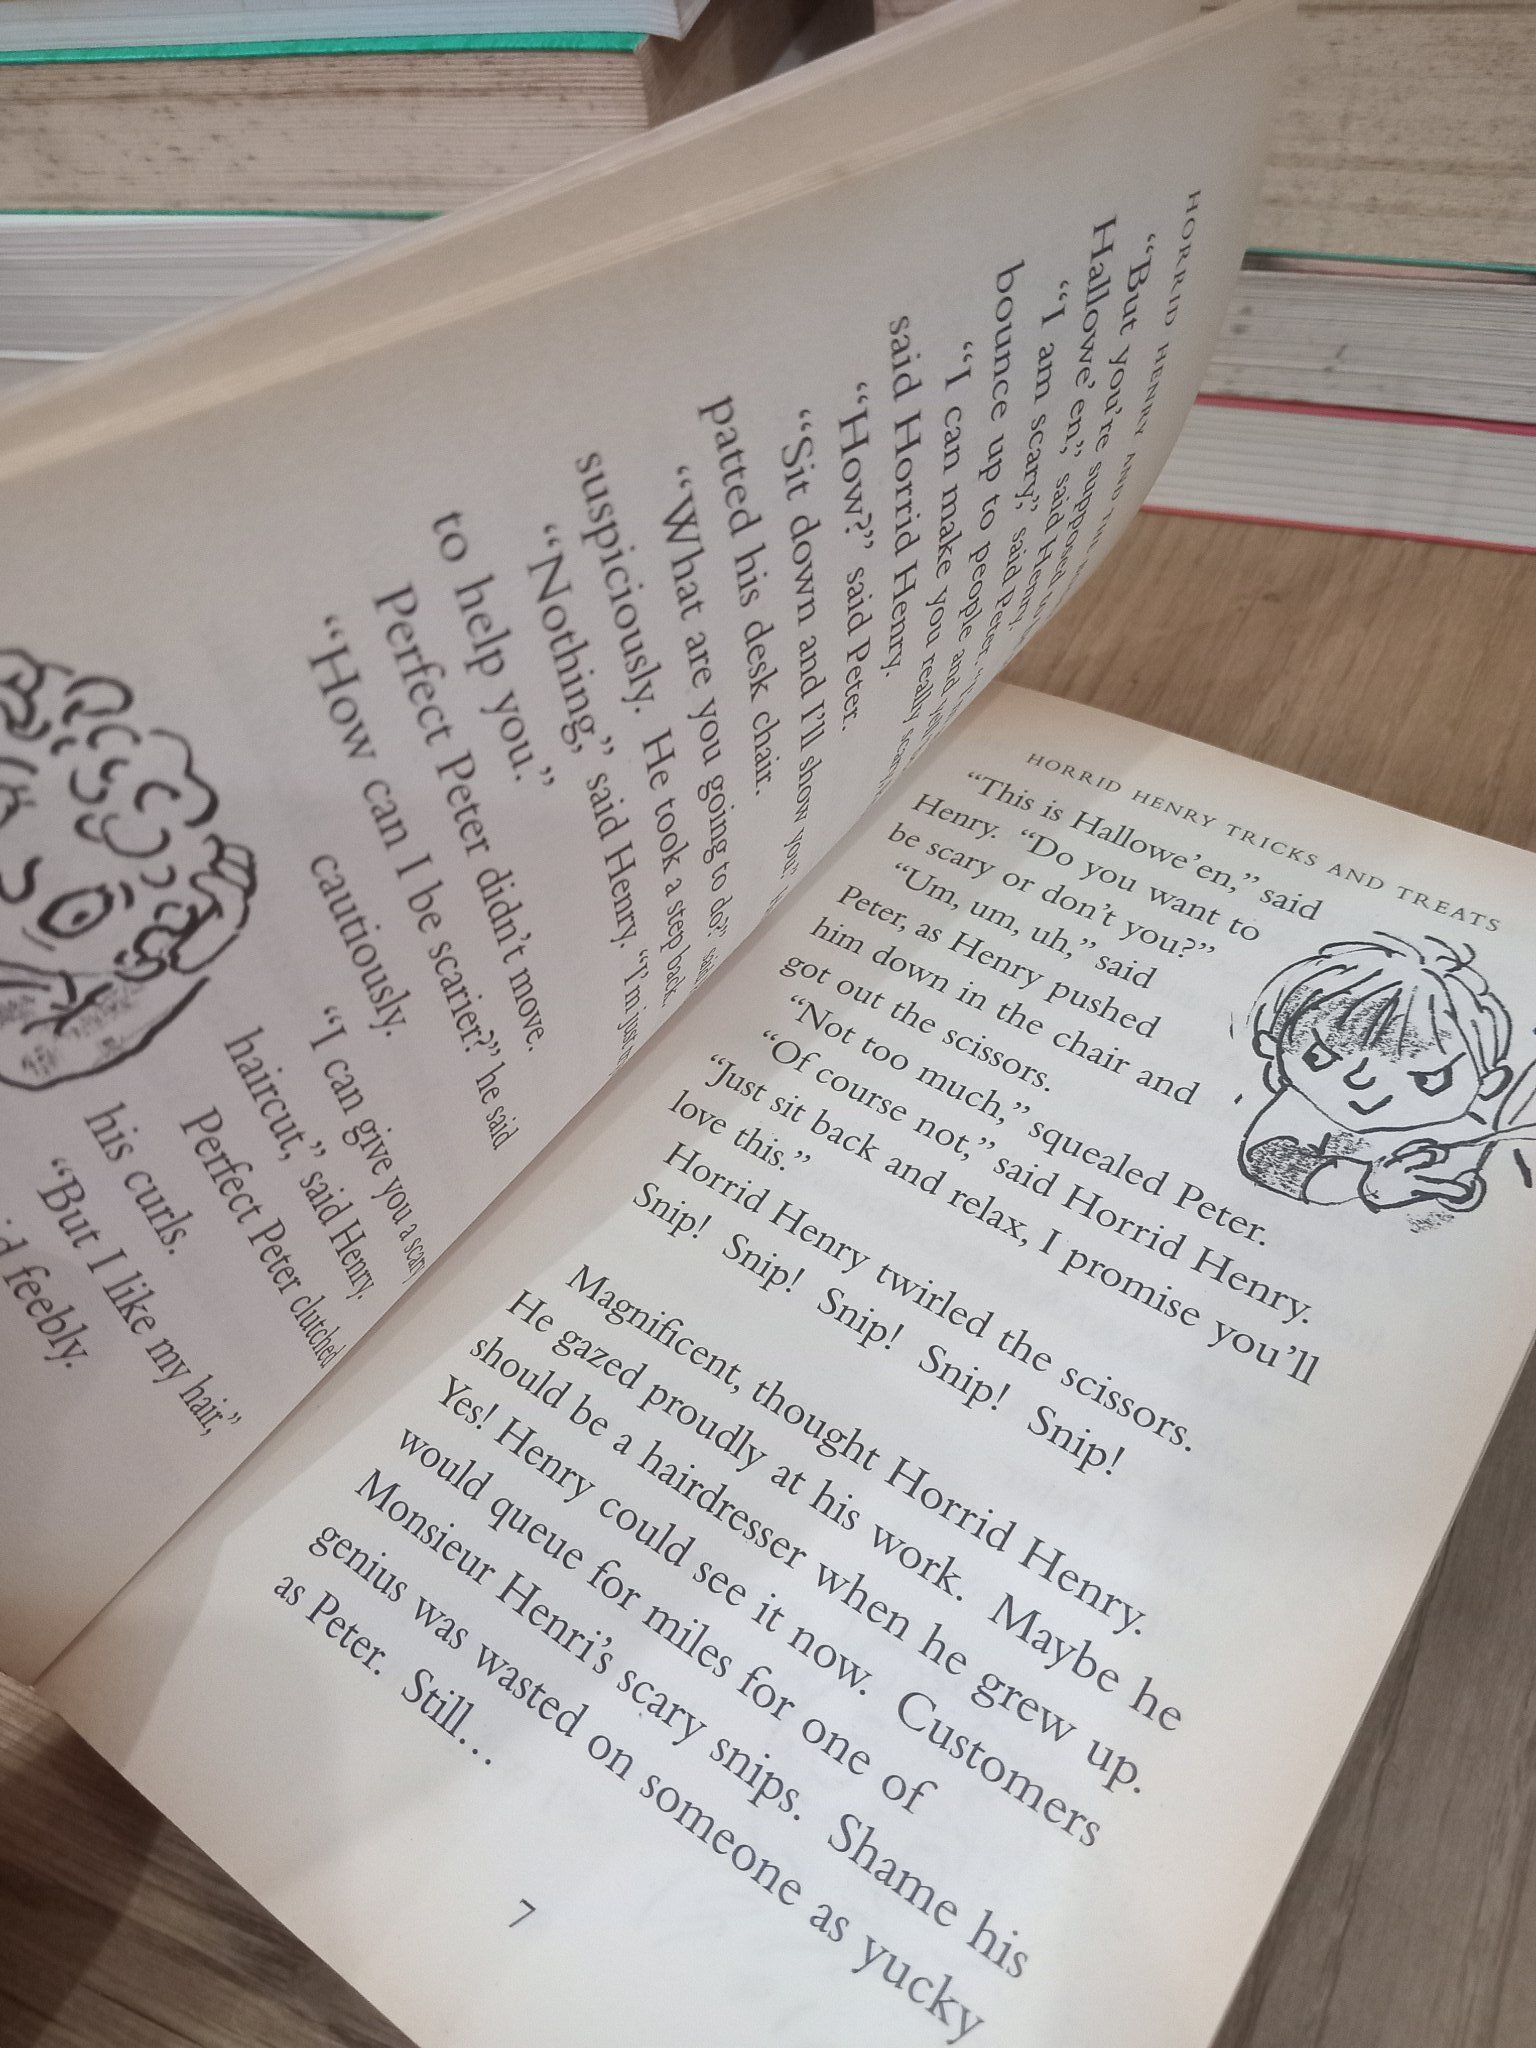 HORRID HENRY AND THE
"But you're supposed to
Hallowe'en," said Henry
"I am scary," said Peter.
bounce up to people and
"I can make you really
said Horrid Henry.
"How?" said Peter.
"Sit down and I'll show you,"
patted his desk chair.
"What are you going to do?" said
suspiciously. He took a step back.
"Nothing," said Henry. "I'm just
to help you."
Perfect Peter didn't move.
"How can I be scarier?" he said
cautiously.
"I can give you a scary
haircut," said Henry.
Perfect Peter clutched
his curls.
"But I like my hair,"
feebly.
HORRID HENRY TRICKS AND TREATS
"This is Hallowe'en," said
Henry. "Do you want to
be scary or don't you?"
"Um, um, uh," said
Peter, as Henry pushed
him down in the chair and
got out the scissors.
"Not too much," squealed Peter.
"Of course not," said Horrid Henry.
"Just sit back and relax, I promise you'll
love this."
Horrid Henry twirled the scissors.
Snip! Snip! Snip! Snip! Snip!
Magnificent, thought Horrid Henry.
He gazed proudly at his work. Maybe he
should be a hairdresser when he grew up.
Yes! Henry could see it now. Customers
would queue for miles for one of
Monsieur Henri's scary snips. Shame his
genius was wasted on someone as yucky
as Peter. Still...
7